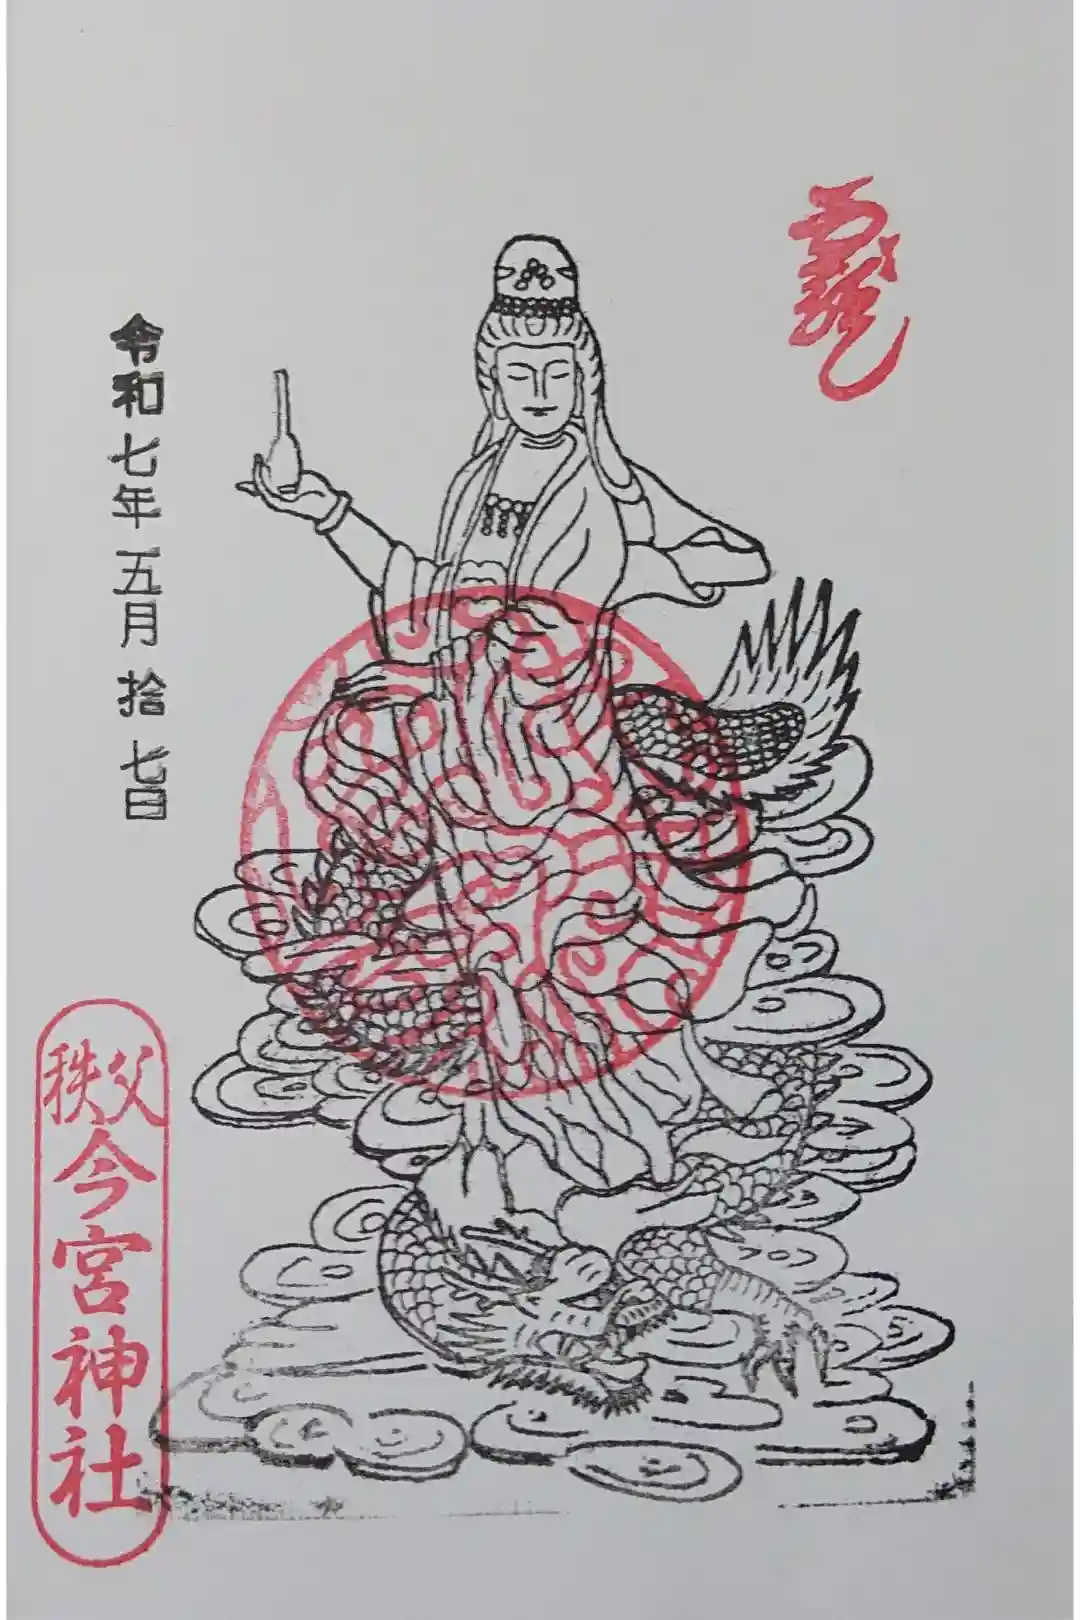 龍
令和七年五月拾七日
秩父
今宮神社